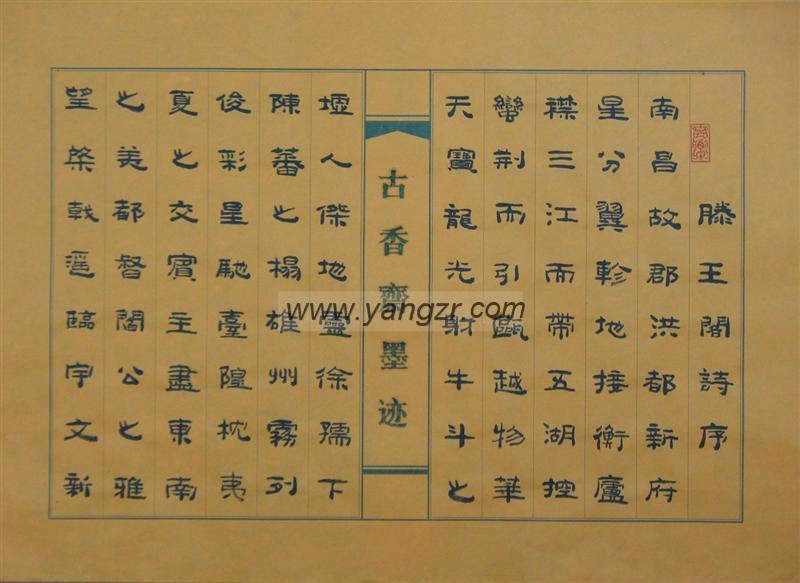 滕王閣詩序
南昌故郡洪都新府
星分翼軫地接衡廬
襟三江而帶五湖控
蠻荆而引甌越物華
天寶龍光射牛斗之
古香齋墨迹
墟人傑地靈徐孺下
陳蕃之榻雄州霧列
俊彩星馳臺隍枕夷
夏之交賓主盡東南
之美都督閻公之雅
望棨戟遥臨宇文新
www.yangzr.com